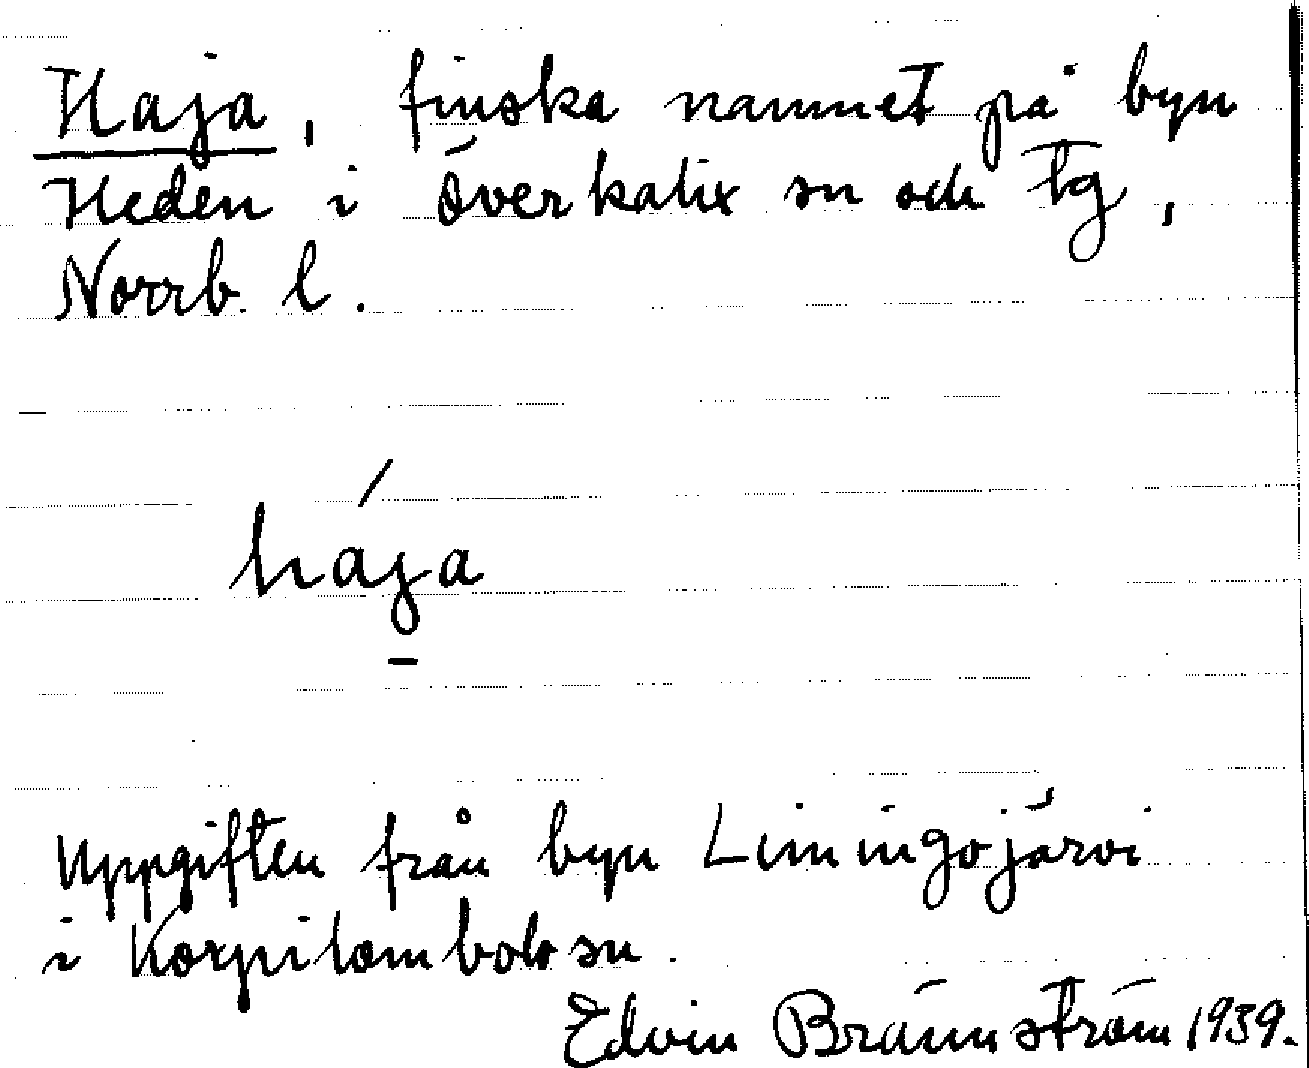 Haja, finska namnet på byn
Heden i Överkalix sn och tg,
Norrb. l.
hája
Uppgiften från byn Liminingojärvi
i Korpilombolo sn.
Edvin Brännström 1939.